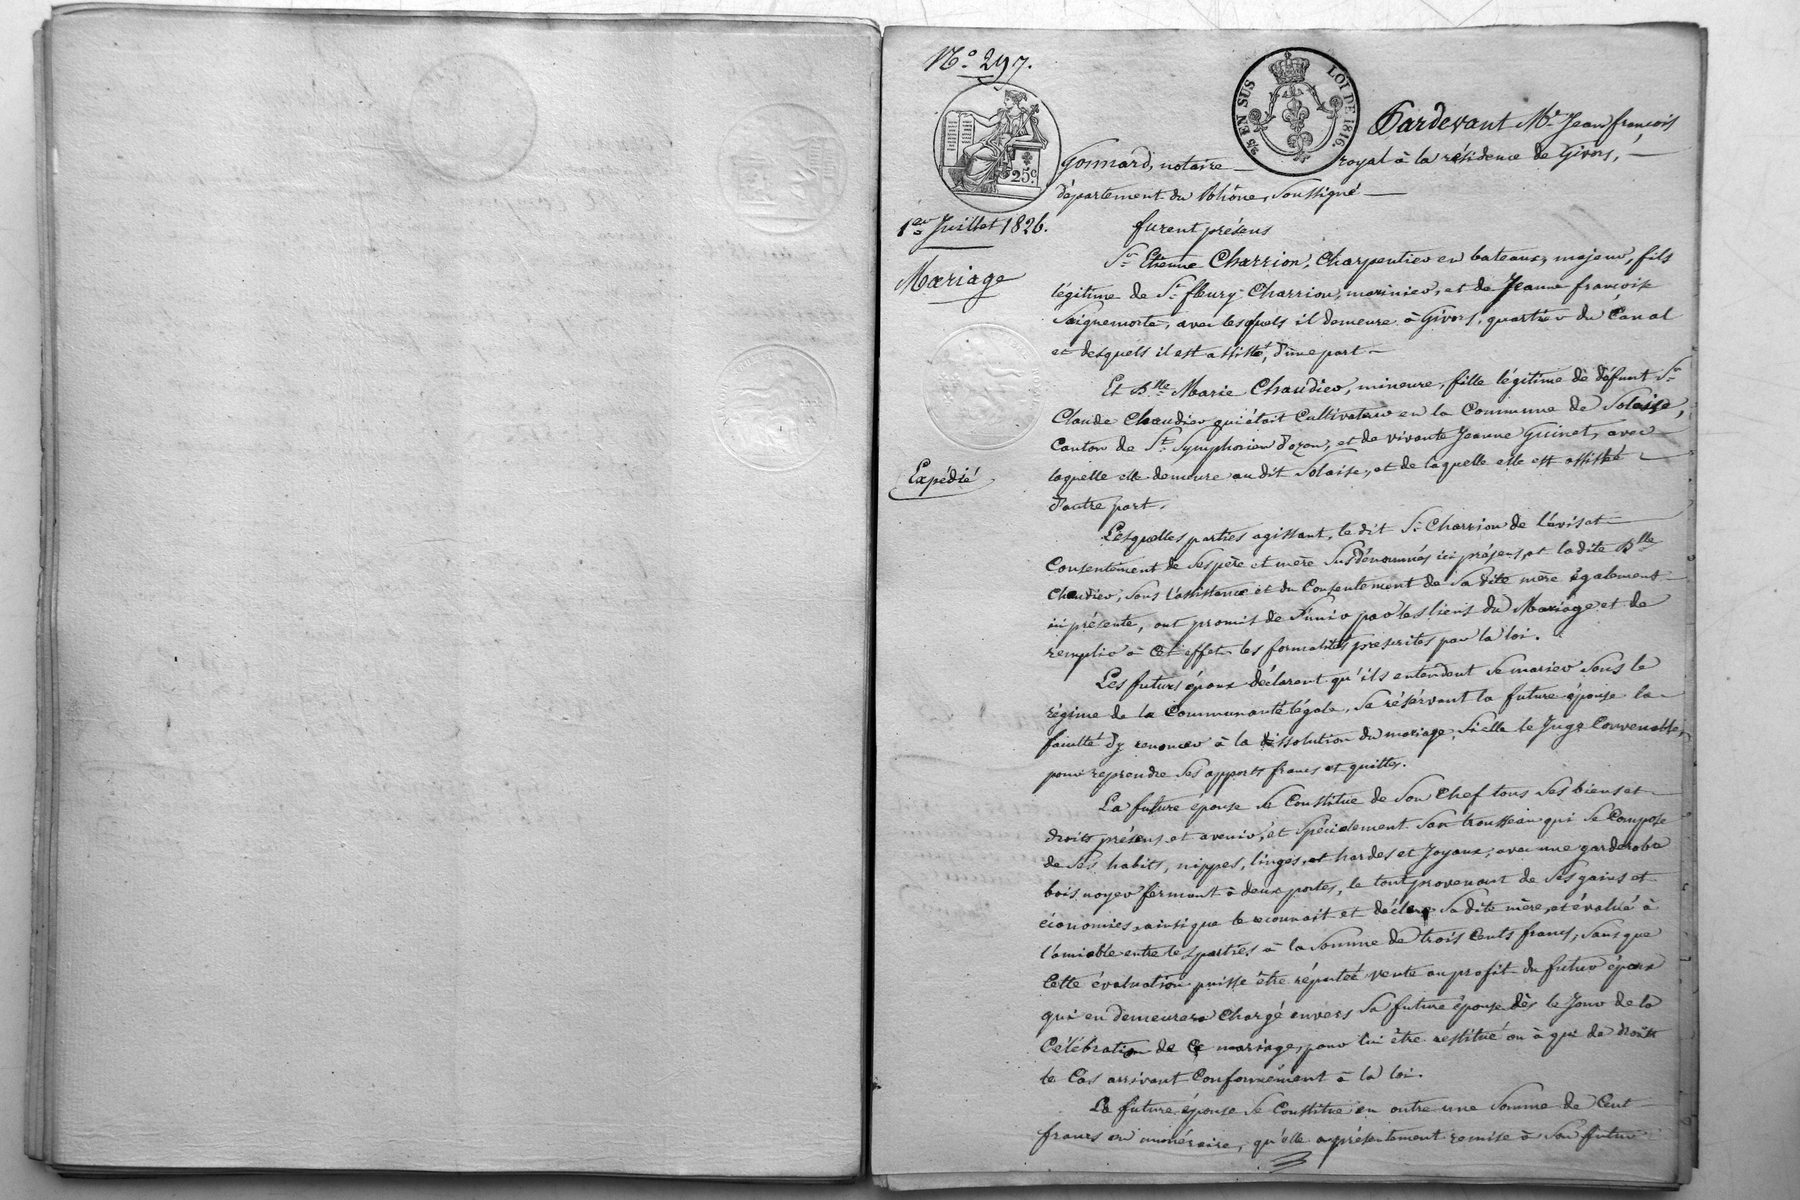 N.° 297.
25 EN SUS LOI DE 1816.
25c
1.er Juillet 1826.
Mariage
Expédié
Pardevant M.e Jean françois
Gonnard, notaire royal à la résidence de Givors,
département du Rhône, soussigné
furent présens
S.r Etienne Charrion, Charpentier en bateaux, majeur, fils
légitime de S.r fleury Charrion, marinier, et de Jeanne françoise
Saignemorte, avec lesquels il demeure à Givors, quartier du Canal
et desquels il est assisté, d'une part
Et D.lle Marie Chaudier, mineure, fille légitime de défunt S.r
Claude Chaudier qui était Cultivateur en la Commune de Solaise,
Canton de S.t Symphorien d'ozon, et de vivante Jeanne Guinet, avec
laquelle elle demeure au dit Solaise, et de laquelle elle est assistée
d'autre part.
Lesquelles parties agissant, le dit S.r Charrion de l'avis et
Consentement de ses père et mère susdénommés ici présens, et la dite D.lle
Chaudier, sous l'assistance et du Consentement de sa dite mère également
ici présente, ont promis de s'unir par les liens du Mariage et de
remplir à cet effet les formalités prescrites par la loi.
Les futurs époux déclarent qu'ils entendent se marier sous le
régime de la Communauté légale, se réservant la future épouse la
faculté d'y renoncer à la dissolution du mariage, si elle le juge Convenable,
pour reprendre ses apports francs et quittes.
La future épouse se Constitue de son Chef tous ses biens et
droits présens et avenir, et spécialement son trousseau qui se Compose
de ses habits, nippes, linges, et hardes et Joyaux, avec une garderobe
bois noyer fermant à deux portes, le tout provenant de ses gains et
économies, ainsi que le reconnait et déclare sa dite mère, et évalué à
l'amiable entre les parties à la somme de trois Cents francs, sans que
Cette évaluation puisse être réputée vente au profit du futur époux
qui en demeurera Chargé envers sa future épouse dès le Jour de la
Célébration de Ce mariage, pour lui être restitué ou à qui de droit
le Cas arrivant Conformément à la loi.
La future épouse se Constitue en outre une somme de Cent
francs en numéraire, qu'elle a présentement remise à son futur